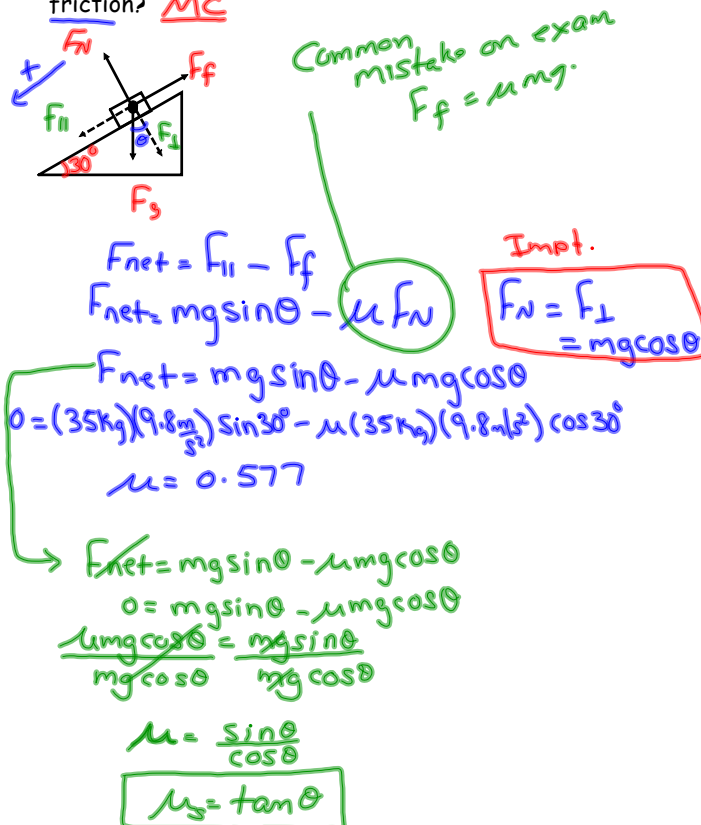 friction? MC
Common
mistake on exam
F_f = μmg.
F_N
F_f
+
F_||
θ
F_⊥
30°
F_g
Impt.
Fnet = F_|| - F_f
Fnet = mgsinθ - μF_N
F_N = F_⊥
= mgcosθ
Fnet = mgsinθ - μmgcosθ
0 = (35kg)(9.8 m/s²) sin30° - μ(35kg)(9.8m/s²) cos30°
μ = 0.577
Fnet = mgsinθ - μmgcosθ
0 = mgsinθ - μmgcosθ
μmgcosθ = mgsinθ
mgcosθ mgcosθ
μ = sinθ
cosθ
μ_s = tanθ